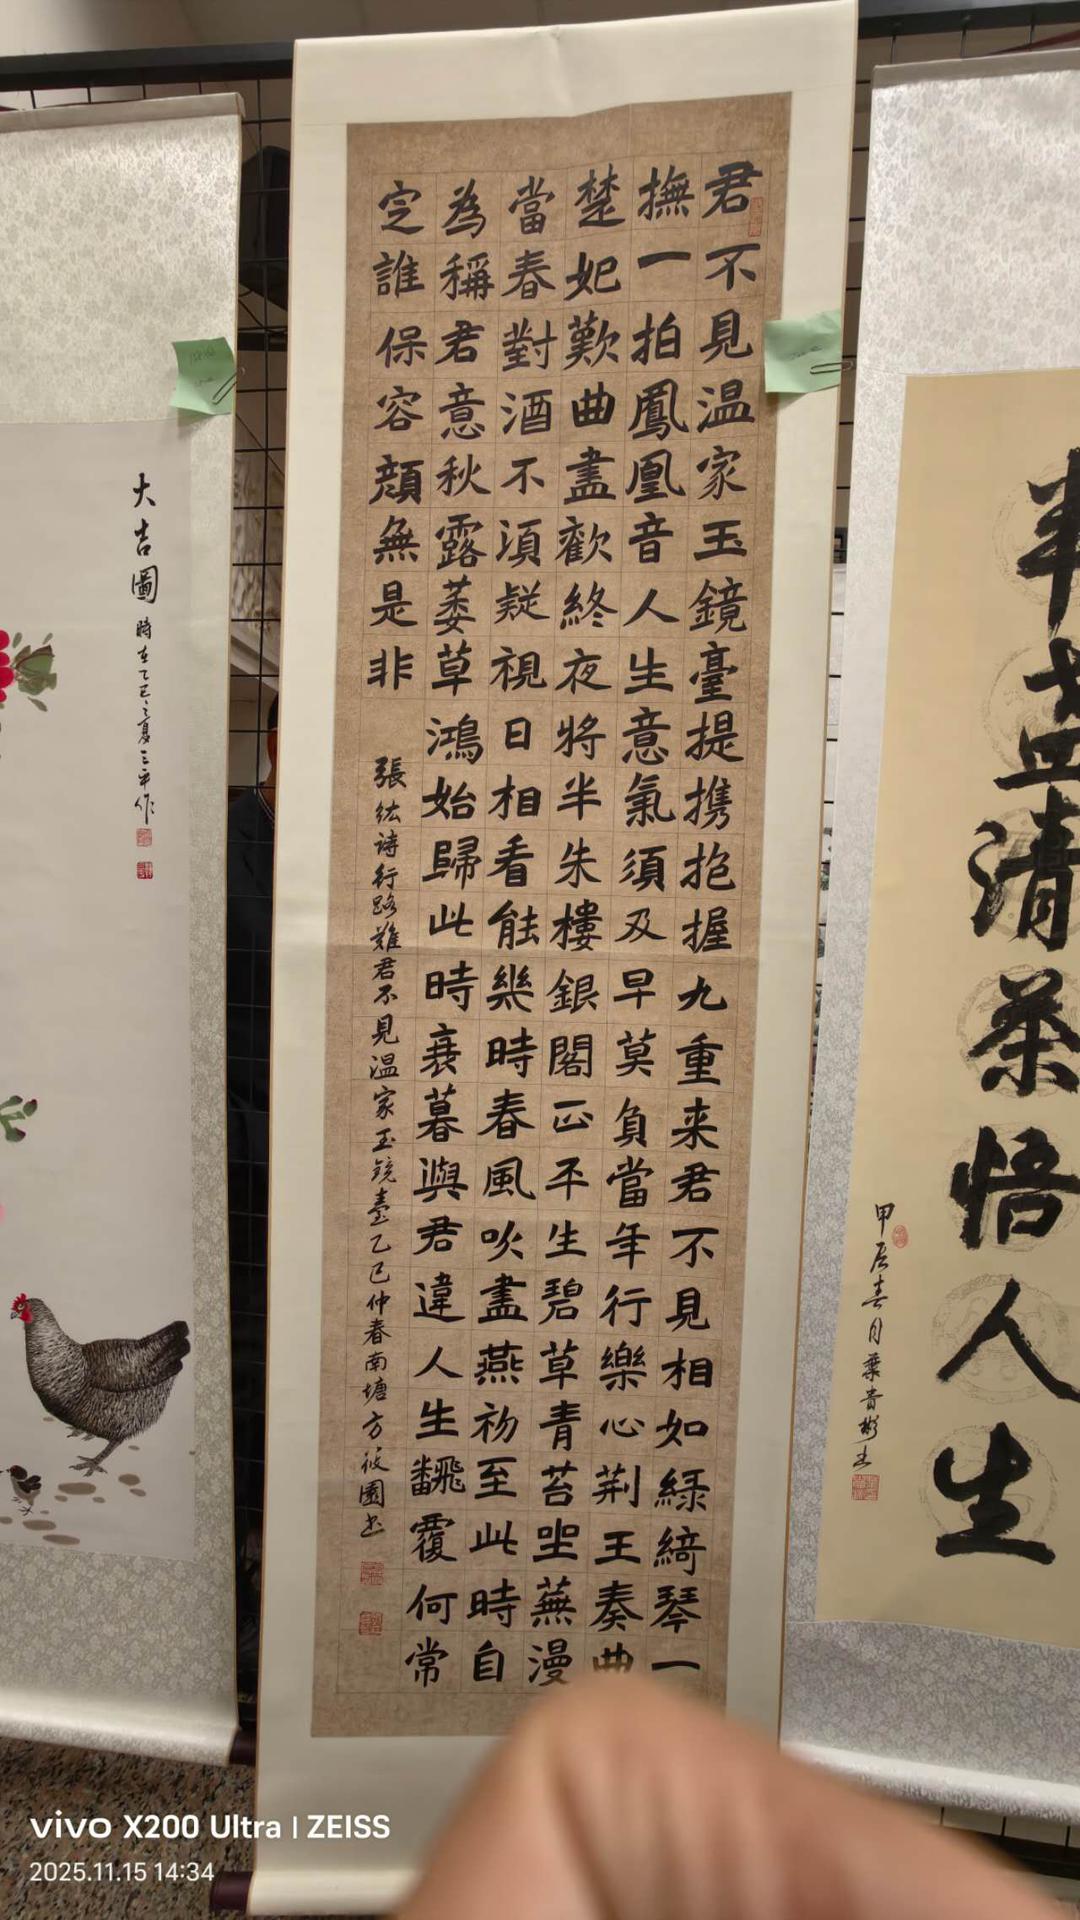 半盏清茶悟人生
甲辰春月葉貴彬书
君不見温家玉鏡臺提携抱握九重来君不見相如緑綺琴一
撫一拍鳳凰音人生意氣須及早莫負當年行樂心荆王奏曲
楚妃歎曲盡歡終夜將半朱樓銀閣正平生碧草青苔坐蕪漫
當春對酒不須疑視日相看能幾時春風吹盡燕初至此時自
為稱君意秋露萎草鴻始歸此時衰暮與君違人生飜覆何常
定誰保容顔無是非
張紘诗行路難君不見温家玉鏡臺乙巳仲春南塘方筱園书
大吉圖
時在乙巳之夏三平作
vivo X200 Ultra | ZEISS
2025.11.15 14:34